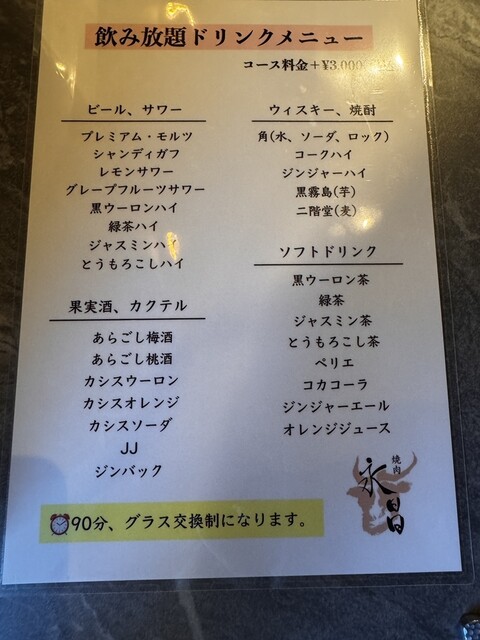 飲み放題ドリンクメニュー
コース料金+¥3,000
ビール、サワー
プレミアム・モルツ
シャンディガフ
レモンサワー
グレープフルーツサワー
黒ウーロンハイ
緑茶ハイ
ジャスミンハイ
とうもろこしハイ
果実酒、カクテル
あらごし梅酒
あらごし桃酒
カシスウーロン
カシスオレンジ
カシスソーダ
JJ
ジンバック
ウィスキー、焼酎
角(水、ソーダ、ロック)
コークハイ
ジンジャーハイ
黒霧島(芋)
二階堂(麦)
ソフトドリンク
黒ウーロン茶
緑茶
ジャスミン茶
とうもろこし茶
ペリエ
コカコーラ
ジンジャーエール
オレンジジュース
焼肉
永昌
⏰90分、グラス交換制になります。